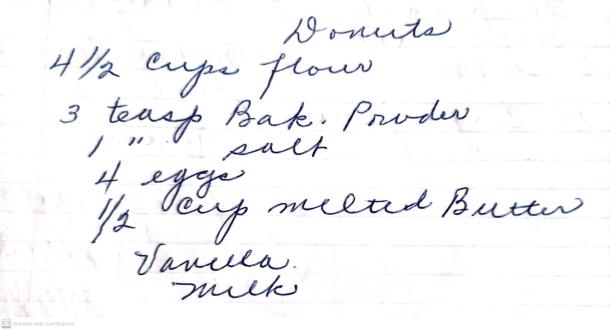 Donuts
4 1/2 Cups flour
3 teasp Bak. Powder
1 " salt
4 eggs
1/2 Cup melted Butter
Vanilla.
Milk
CS Scanned with CamScanner